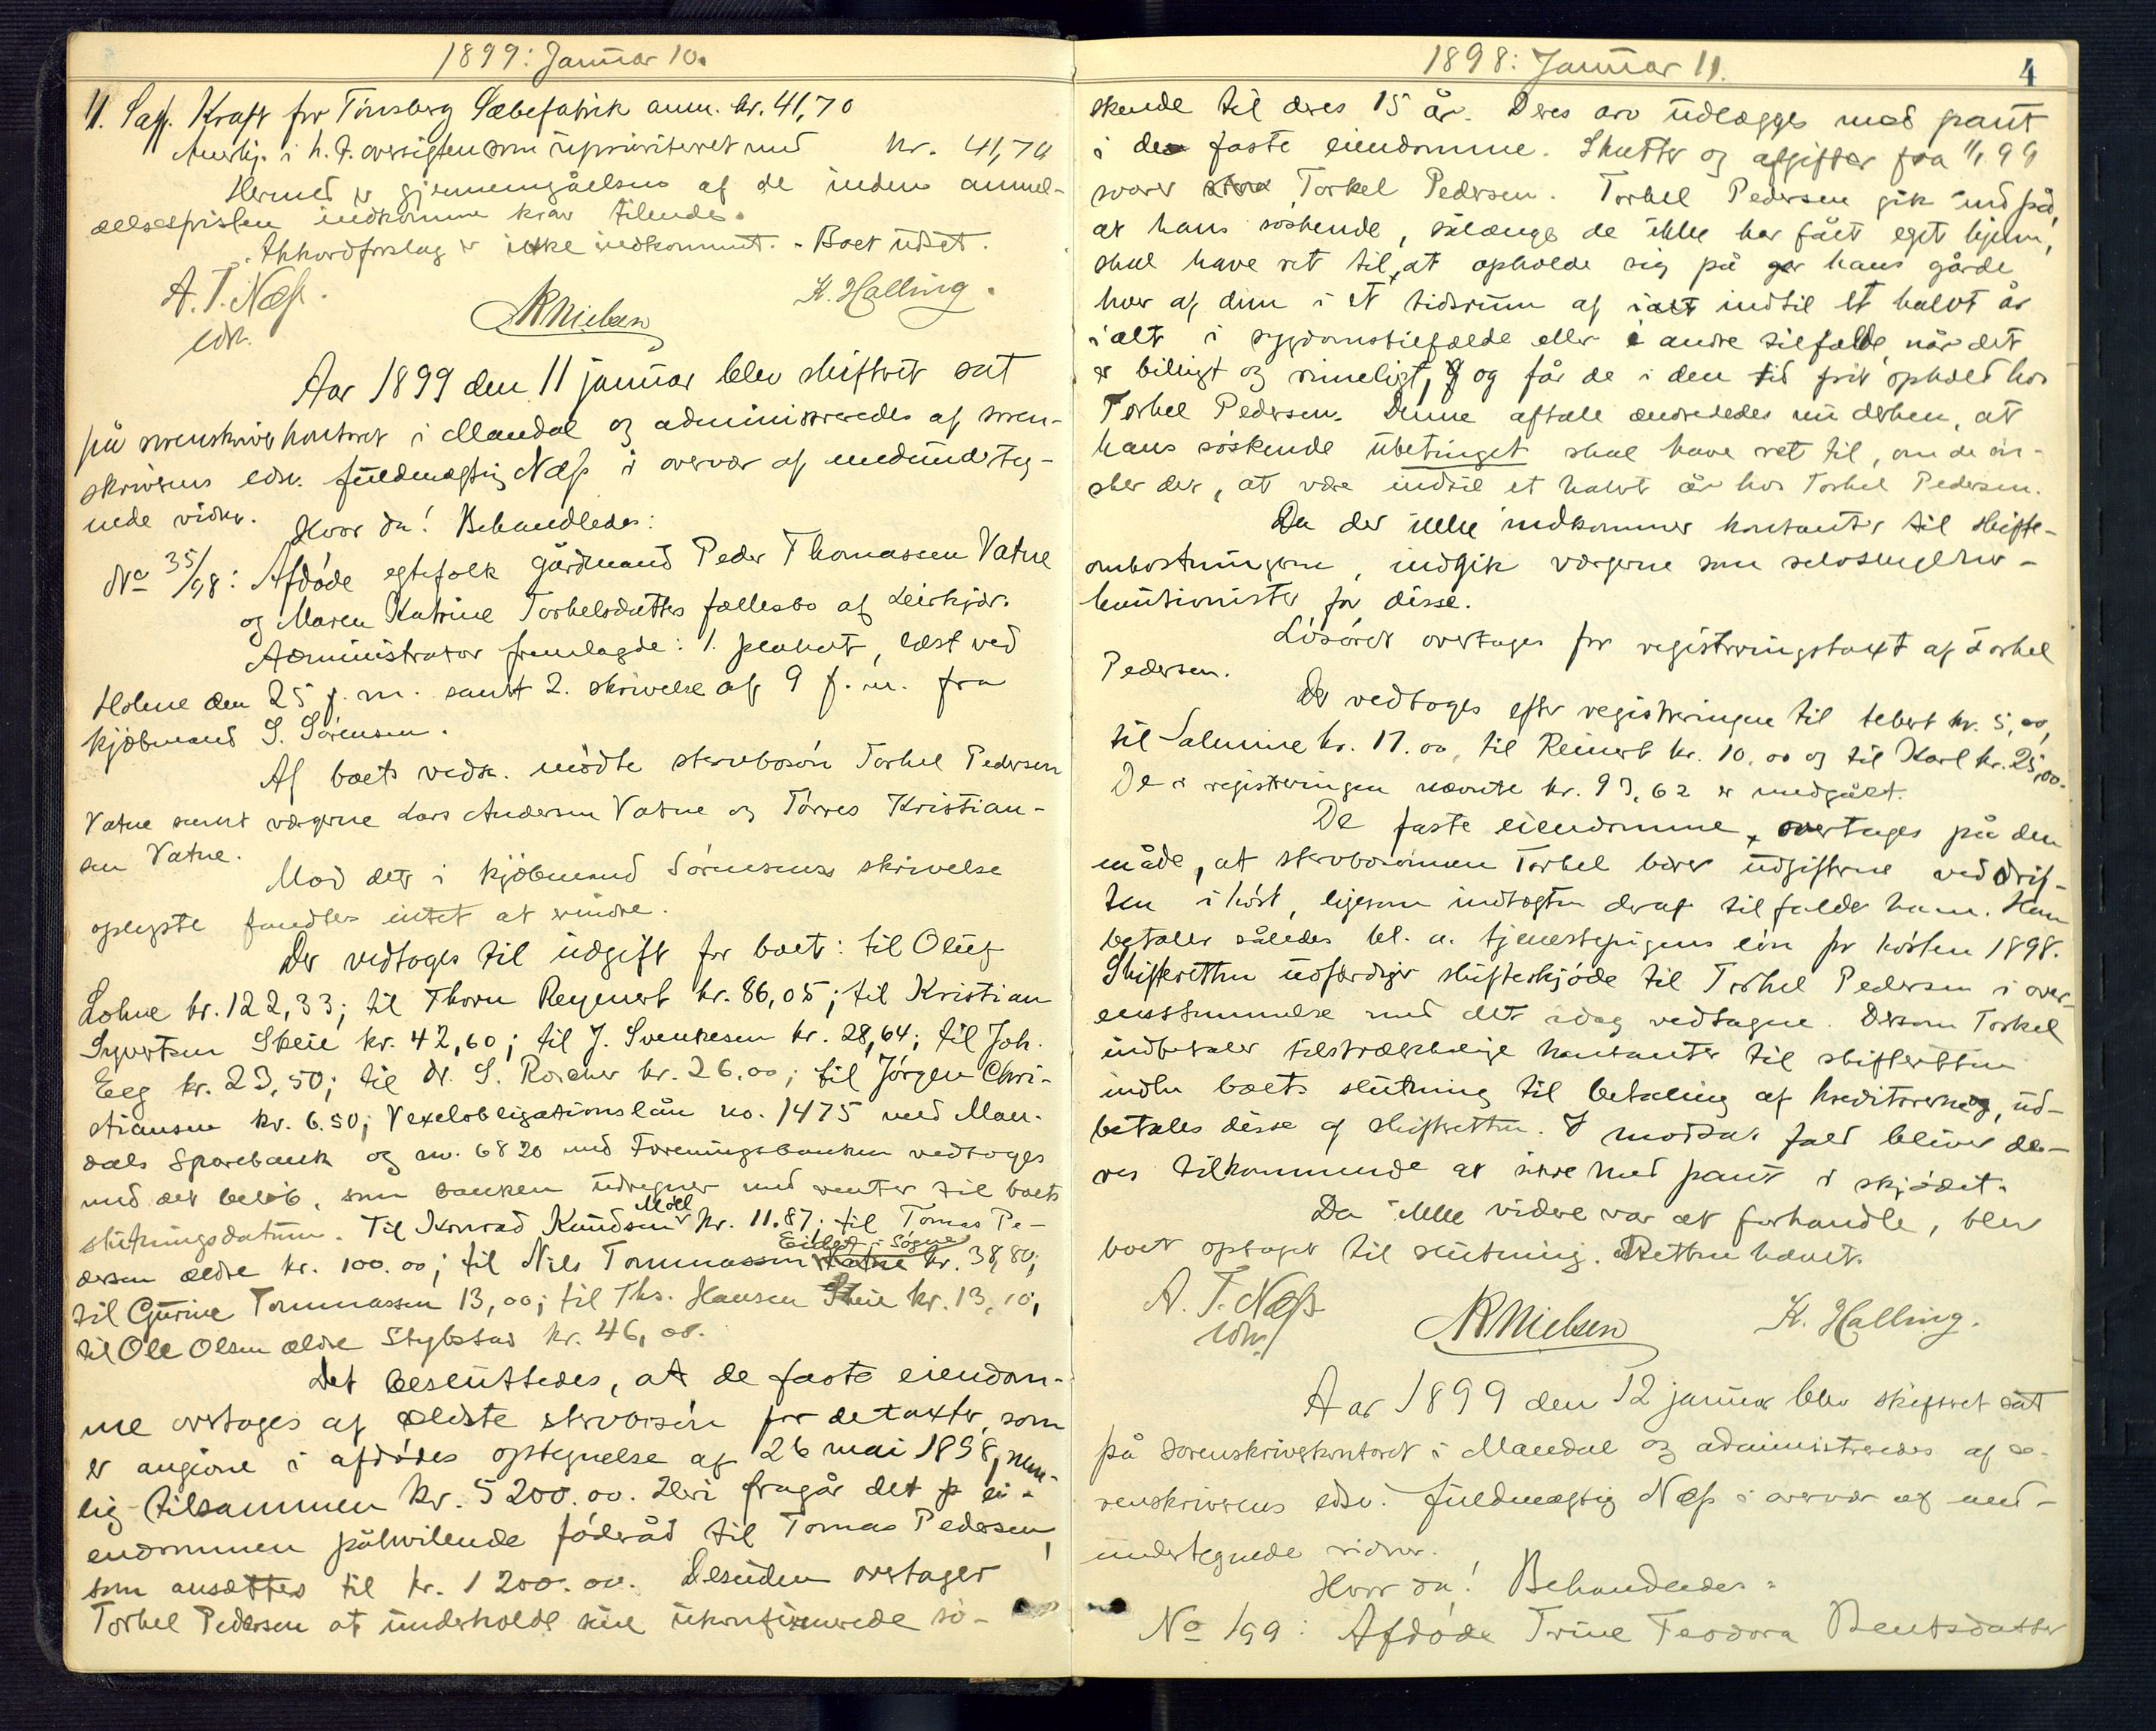 1899: Januar 10.
11. Sagf. Kraft for Tønsberg Sæbefabrik anm. kr. 41,70
Anerkj. i h. t. oversigten som uprioriteret med kr. 41,70
Hermed er gjennemgåelsen af de inden anmel-
delsesfristen indkomne krav tilende.
Akkordforslag er ikke indkommet. - Boet udsat.
A. T. Næss. K. Halling.
edsv. NNielsen
Aar 1899 den 11 januar blev skifteret sat
på sorenskriverkontoret i Mandal og administreredes af soren-
skriverens edsv. fuldmægtig Næss i overvær af medunderteg-
nede vidner.
Hvor da! Behandledes:
No 35/98: Afdøde egtefolk gårdmand Peder Thomassen Vatne
og Maren Katrine Torkelsdatters fællesbo af Leirkjær.
Administrator fremlagde: 1. plakat, læst ved
Holme den 25 f. m. samt 2. skrivelse af 9 f. m. fra
kjøbmand S. Sørensen.
Af boets vedk. mødte stervbosøn Torkel Pedersen
Vatne samt værgerne Lars Andersen Vatne og Tørres Kristian-
sen Vatne.
Mod det i kjøbmand Sørensens skrivelse
oplyste fandtes intet at erindre.
Der vedtoges til udgift for boet: til Oluf
Lohne kr. 122,33; til Thorn Reynert kr. 86,05; til Kristian
Syvertsen Skeie kr. 42,60; til J. Svendsen kr. 28,64; til Joh.
Eeg kr. 23,50; til dr. S. Roscher kr. 26.00; til Jørgen Chri-
stiansen kr. 6.50; Vexelobligationslån no. 1475 med Man-
dals Sparebank og no. 6820 med Foreningsbanken vedtoges
med det beløb, som banken udregner med renter til boets
slutningsdatum. Til Konrad Knudsen Møll kr. 11.87; til Tomas Pe-
dersen ældre kr. 100.00; til Nils Tommassen Vatne Eitland i Søgne kr. 38,80;
til Gurine Tommassen 13,00; til Ths. Hansen Skeie kr. 13,10;
til Ole Olsen ældre Stybstad kr. 46,00.
Det besluttedes, at de faste eiendom-
me overtages af ældste stervbosøn for de taxter, som
er angivne i afdødes optegnelse af 26 mai 1898, nem-
lig tilsammen kr. 5200.00. Heri fragår det på ei-
endommen påhvilende føderåd til Tomas Pedersen,
som ansættes til kr. 1200.00. Desuden overtager
Torkel Pedersen at underholde sine ukonfirmerede sø-
1898: Januar 11.
4
skende til deres 15 år. Deres arv udlægges mod pant
i de faste eiendomme. Skatter og afgifter fra 1/1 99
svarer Torkel Pedersen. Torkel Pedersen gik ind på,
at hans søskende, sålænge de ikke har fået eget hjem,
skal have ret til, at opholde sig på hans gårde
hver af dem i et tidsrum af ialt indtil et halvt år
ialt i sygdomstilfælde eller i andre tilfælde, når det
er billigt og rimeligt, og får de i den tid frit ophold hos
Torkel Pedersen. Denne aftale ændrededes nu derhen, at
hans søskende ubetinget skal have ret til, om de øn-
sker det, at være indtil et halvt år hos Torkel Pedersen.
Da der ikke indkommer kontanter til skifte-
omkostningerne, indgik værgerne som selvskyldner-
kautionister for disse.
Løsøret overtages for registreringstaxt af Torkel
Pedersen.
Der vedtoges efter registreringen til Lebert kr. 5,00,
til Salmine kr. 17.00, til Reinert kr. 10.00 og til Karl kr. 25,00.
De i registreringen nævnte kr. 93,62 er medgået.
De faste eiendomme overtages på den
måde, at stervbosønnen Torkel bærer udgifterne ved drif-
ten i høst, ligesom indtægten deraf tilfalder ham. Han
betaler således bl. a. tjenestepigens løn for høsten 1898.
Skifteretten udfærdiger skifteskjøde til Torkel Pedersen i over-
ensstemmelse med det idag vedtagne. Dersom Torkel
indbetaler tilstrækkelige kontanter til skifteretten
inden boets slutning til betaling af kreditorerne, ud-
betales disse af skifteretten. I modsat fald bliver de-
res tilkommende at sikre med pant i skjødet.
Da ikke videre var at forhandle, blev
boet optaget til slutning. Retten hævet.
A. T. Næss K. Halling.
edsv. NNielsen
Aar 1899 den 12 januar blev skifteret sat
på sorenskriverkontoret i Mandal og administreredes af so-
renskriverens edsv. fuldmægtig Næss i overvær af med-
undertegnede vidner.
Hvor da! Behandledes:
No 1/99: Afdøde Trine Teodora Bentsdatter